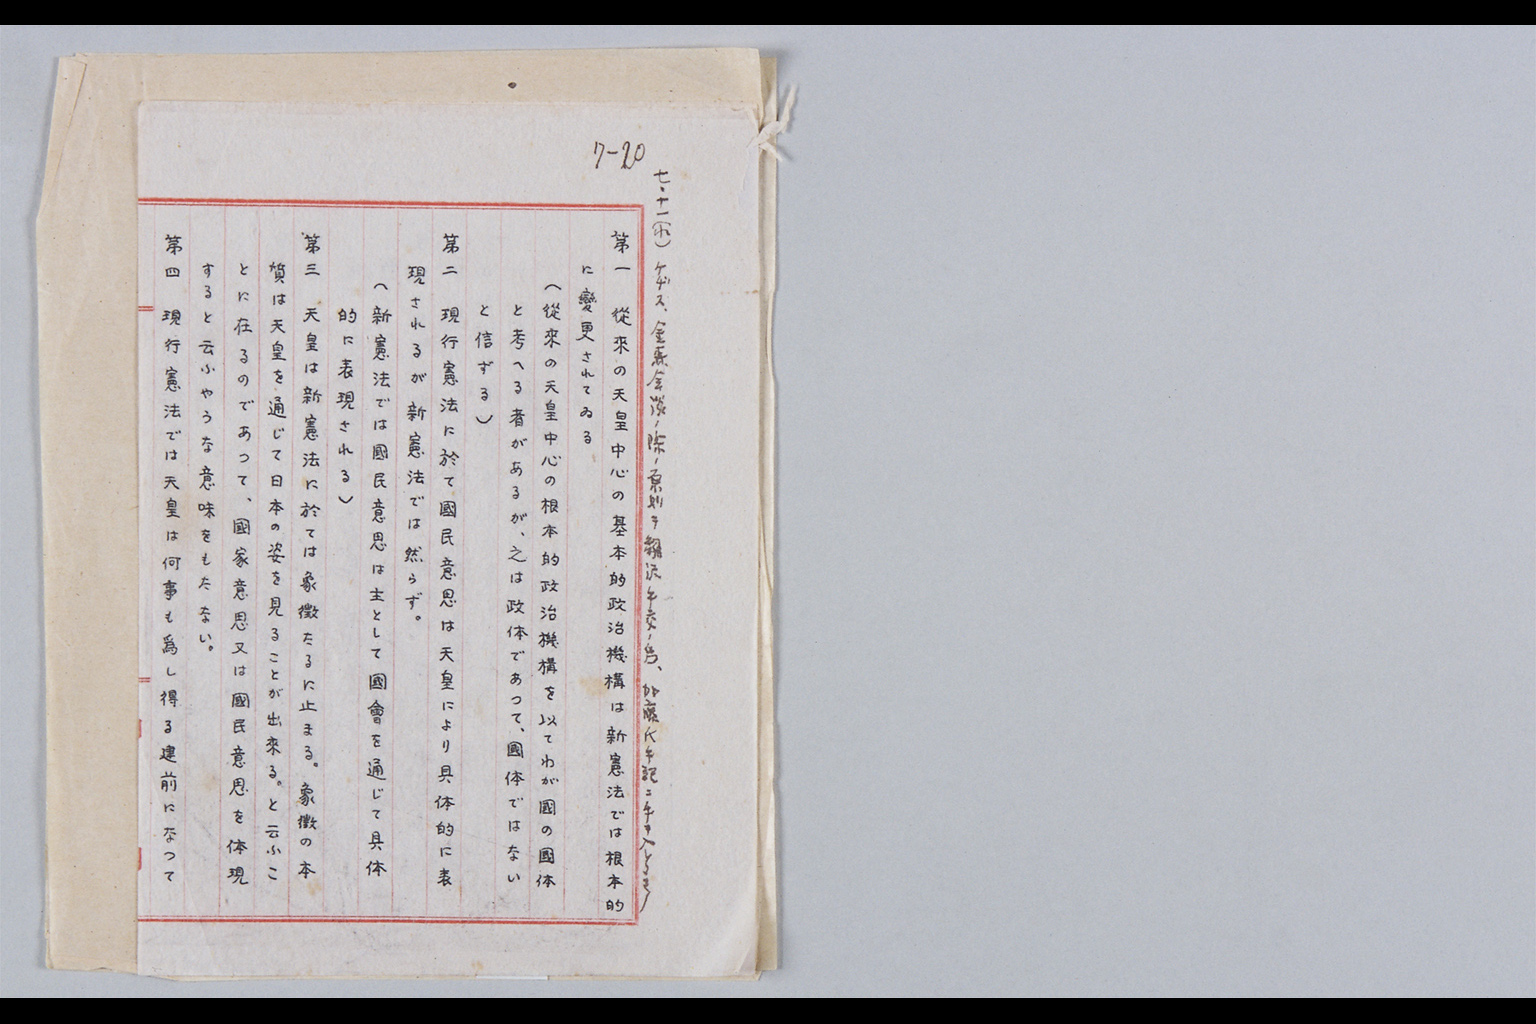 7-20
七・十一(水) ケヂス、金森会談ノ際ノ原則ヲ
第一 從來の天皇中心の基本的政治機構は新憲法では根本的
に變更されてゐる
(從來の天皇中心の根本的政治機構を以てわが國の國体
と考へる者があるが、之は政体であつて、國体ではない
と信ずる)
第二 現行憲法に於て國民意思は天皇により具体的に表
現されるが新憲法では然らず。
(新憲法では國民意思は主として國會を通じて具体
的に表現される)
第三 天皇は新憲法に於ては象徴たるに止まる。象徴の本
質は天皇を通じて日本の姿を見ることが出來る。と云ふこ
とに在るのであつて、國家意思又は國民意思を体現
すると云ふやうな意味をもたない。
第四 現行憲法では天皇は何事も爲し得る建前になつて